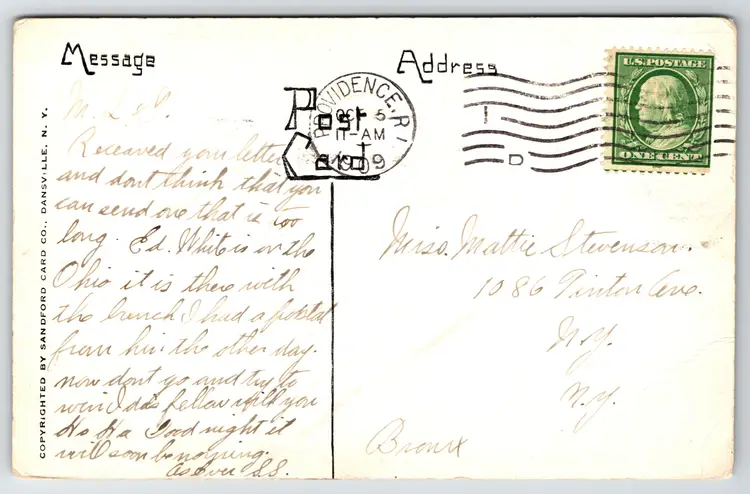 Message
Address
Post
Card
PROVIDENCE, R.I.
OCT 5
11-AM
1909
I
D
U.S. POSTAGE
ONE CENT
COPYRIGHTED BY SANDFORD CARD CO., DANSVILLE, N. Y.
Receaved your letter
and dont think that you
can send one that is too
long. Ed. White is on the
Ohio it is there with
the bunch I had a postal
from him the other day.
now dont go and try to
win fellow will you
Ha Ha Good night it
will soon be morning.
As ever S.S.
Miss. Mattie Stevenson.
1086 Tinton Ave.
N.Y.
N.Y.
Bronx